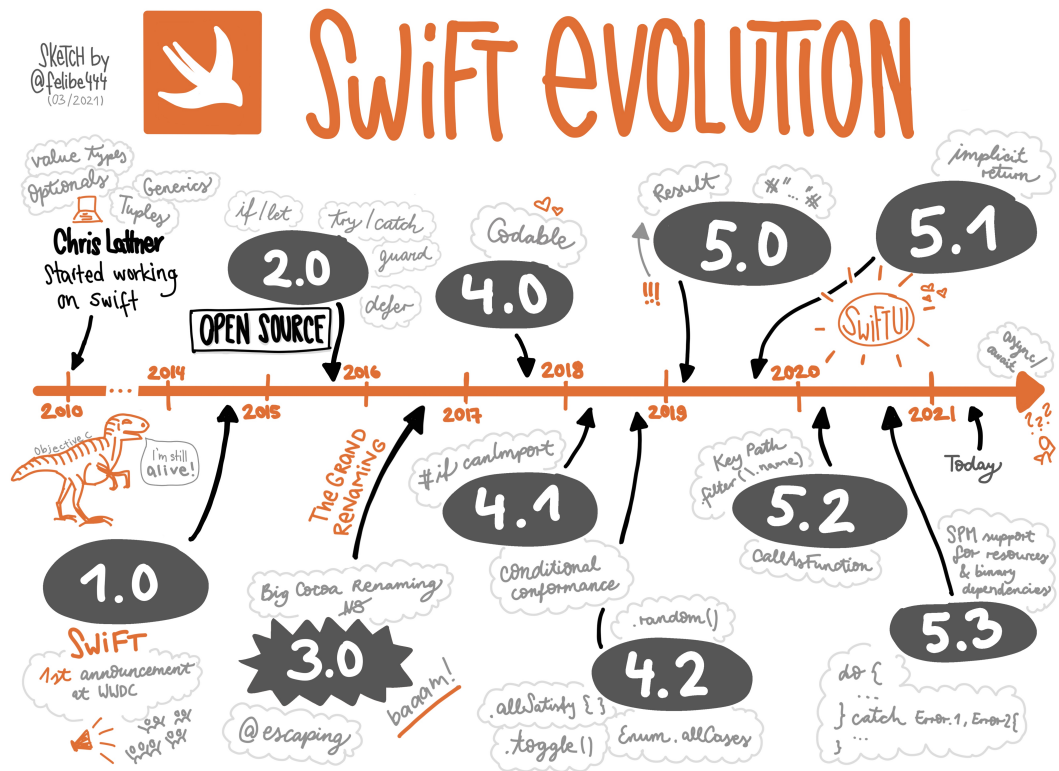 SKETCH by
@felibe444
(03/2021)
SWiFT EVOLUTION
value types
Optionals
Generics
Tuples
Chris Lattner
Started working
on swift
if/let
try/catch
guard
defer
2.0
OPEN SOURCE
Codable
4.0
Result
#"..."#
5.0
!!!
implicit
return
5.1
SWiFTUI
async/
await
2010
...
2014
2015
2016
2017
2018
2019
2020
2021
???
Objective C
I'm still
alive!
1.0
SWiFT
1st announcement
at WWDC
The GRAND
RENAMING
Big Cocoa Renaming
NS
3.0
baaam!
@escaping
#if canImport
4.1
conditional
conformance
.random()
4.2
.allSatisfy { }
.toggle()
Enum.allCases
Key Path
.filter(\.name)
5.2
CallAsFunction
Today
SPM support
for resources
& binary
dependencies
5.3
do {
...
} catch Error.1, Error2{
...
}